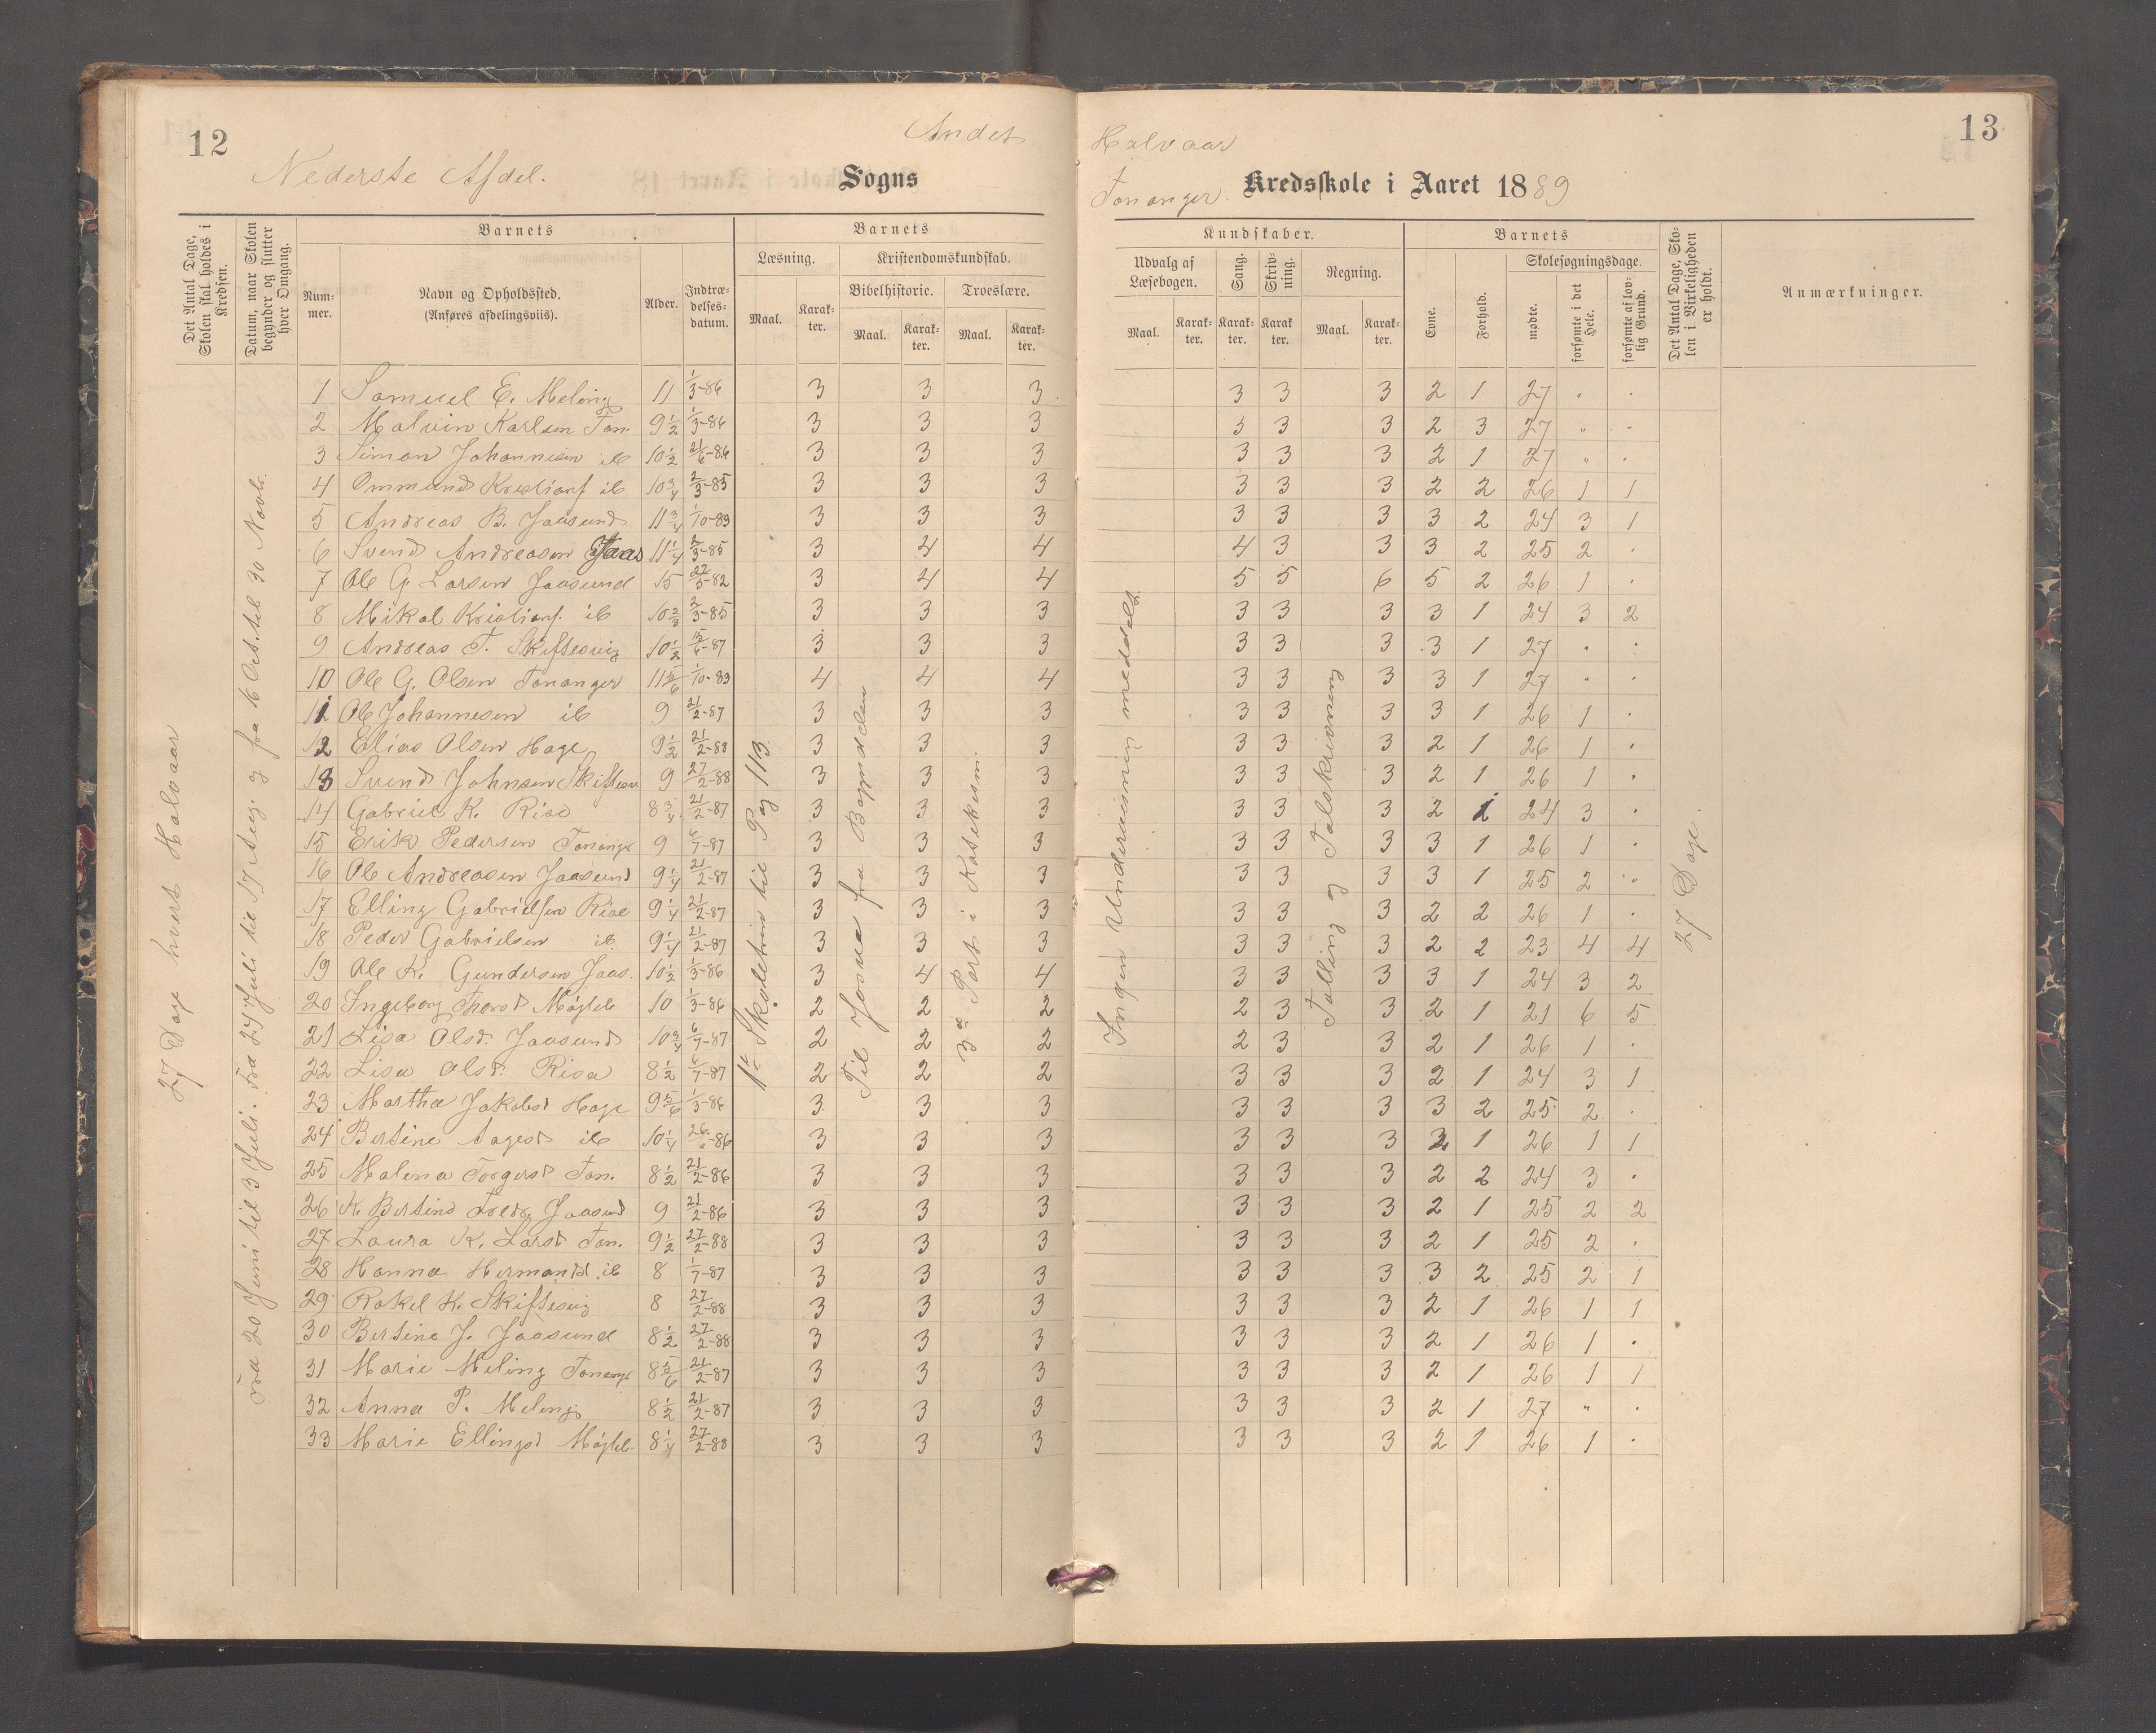 12
Andet
Nederste Afdel.
Sogns
Det Antal Dage, Skolen skal holdes i Kredsen.
Datum, naar Skolen begynder og slutter hver Omgang.
Barnets
Barnets
Num-mer.
Navn og Opholdssted.
(Anføres afdelingsviis).
Alder.
Indtræ-delses-datum.
Læsning.
Kristendomskundskab.
Bibelhistorie.
Troeslære.
Maal.
Karak-ter.
Maal.
Karak-ter.
Maal.
Karak-ter.
27 Dage hvert Halvaar
Fra 20 Juni til 3 Juli. Fra 24 Juli til 17 Aug. og fra 16 Oct. til 30 Novbr.
1ste Skoletrin til Pag 113
Til Josva fra Begyndelsen
3die Part i Katekism.
1 Samuel E. Meling 11 1/3-86 3 3 3
2 Malvin Karlsen Tan. 9 1/2 1/3-86 3 3 3
3 Simon Johannesen ib 10 1/2 21/6-86 3 3 3
4 Ommund Kristians. ib 10 3/4 2/3-85 3 3 3
5 Andreas B. Jaasund 11 3/4 1/10-83 3 3 3
6 Svend Andreasen Jaas 11 1/4 2/3-85 3 4 4
7 Ole G. Larsen Jaasund 15 27/5-82 3 4 4
8 Mikal Kristians. ib 10 2/3 2/3-85 3 3 3
9 Andreas T. Skiftesvig 10 1/2 15/6-87 3 3 3
10 Ole G. Olsen Tananger 11 5/6 1/10-83 4 4 4
11 Ole Johannesen ib 9 21/2-87 3 3 3
12 Elias Olsen Hage 9 1/2 21/2-88 3 3 3
13 Svend Johnsen Skiftesv 9 27/2-88 3 3 3
14 Gabriel K. Risa 8 3/4 21/2-87 3 3 3
15 Erik Pedersen Tanange 9 6/7-87 3 3 3
16 Ole Andreasen Jaasund 9 1/4 21/2-87 3 3 3
17 Elling Gabrielsen Risa 9 1/4 21/2-87 3 3 3
18 Peder Gabrielsen ib. 9 1/4 21/2-87 3 3 3
19 Ole K. Gundersen Jaas. 10 1/2 1/3-86 3 4 4
20 Ingeborg Thorsd Møgleb 10 1/3-86 2 2 2
21 Lisa Olsd. Jaasund 10 3/4 6/7-87 2 2 2
22 Lisa Olsd. Risa 8 1/2 6/7-87 2 2 2
23 Martha Jakobsd Hage 9 5/6 1/3-86 3 3 3
24 Bertine Aagesd ib 10 1/4 -86 3 3 3
25 Malena Torgersd Tan. 8 1/2 21/2-86 3 3 3
26 K. Bertine Fredr. Jaasund 9 21/2-86 3 3 3
27 Laura K. Larsd Tan. 9 1/2 27/2-88 3 3 3
28 Hanna Hermansd. ib 8 1/7-87 3 3 3
29 Rakel K. Skiftesvig 8 27/2-88 3 3 3
30 Bertine J. Jaasund 8 1/2 27/2-88 3 3 3
31 Marie Meling Tanange 8 5/6 21/2-87 3 3 3
32 Anna P. Meling 8 1/2 21/2-87 3 3 3
33 Marie Ellingsd Møgleb. 8 1/4 27/2-88 3 3 3
13
Halvaar
Tananger Kredsskole i Aaret 1889
Kundskaber.
Barnets
Det Antal Dage, Sko-len i Virkeligheden er holdt.
Anmærkninger.
Udvalg af Læsebogen.
Sang.
Skriv-ning.
Regning.
Evne.
Forhold.
Skolesøgningsdage.
Maal.
Karak-ter.
Karak-ter.
Karak-ter.
Maal.
Karak-ter.
mødte.
forsømte i det Hele.
forsømte af lov-lig Grund.
Ingen Underviisning meddelt.
Tælling og Talskrivning
27 Dage.
3 3 3 2 1 27 " "
3 3 3 2 3 27 " "
3 3 3 2 1 27 " "
3 3 3 2 2 26 1 1
3 3 3 3 2 24 3 1
4 3 3 3 2 25 2 "
5 5 6 5 2 26 1 "
3 3 3 3 1 24 3 2
3 3 3 3 1 27 " "
3 3 3 3 1 27 " "
3 3 3 3 1 26 1 "
3 3 3 2 1 26 1 "
3 3 3 2 1 26 1 "
3 3 3 2 1 24 3 "
3 3 3 3 1 26 1 "
3 3 3 3 1 25 2 "
3 3 3 2 2 26 1 "
3 3 3 2 2 23 4 4
3 3 3 3 1 24 3 2
2 3 3 2 1 21 6 5
2 3 3 2 1 26 1 "
3 3 3 2 1 24 3 1
3 3 3 3 2 25 2 "
3 3 3 2 1 26 1 1
3 3 3 2 2 24 3 "
3 3 3 2 1 25 2 2
3 3 3 2 1 25 2 "
3 3 3 3 2 25 2 1
3 3 3 2 1 26 1 1
3 3 3 2 1 26 1 "
3 3 3 2 1 26 1 1
3 3 3 2 1 27 " "
3 3 3 2 1 26 1 "